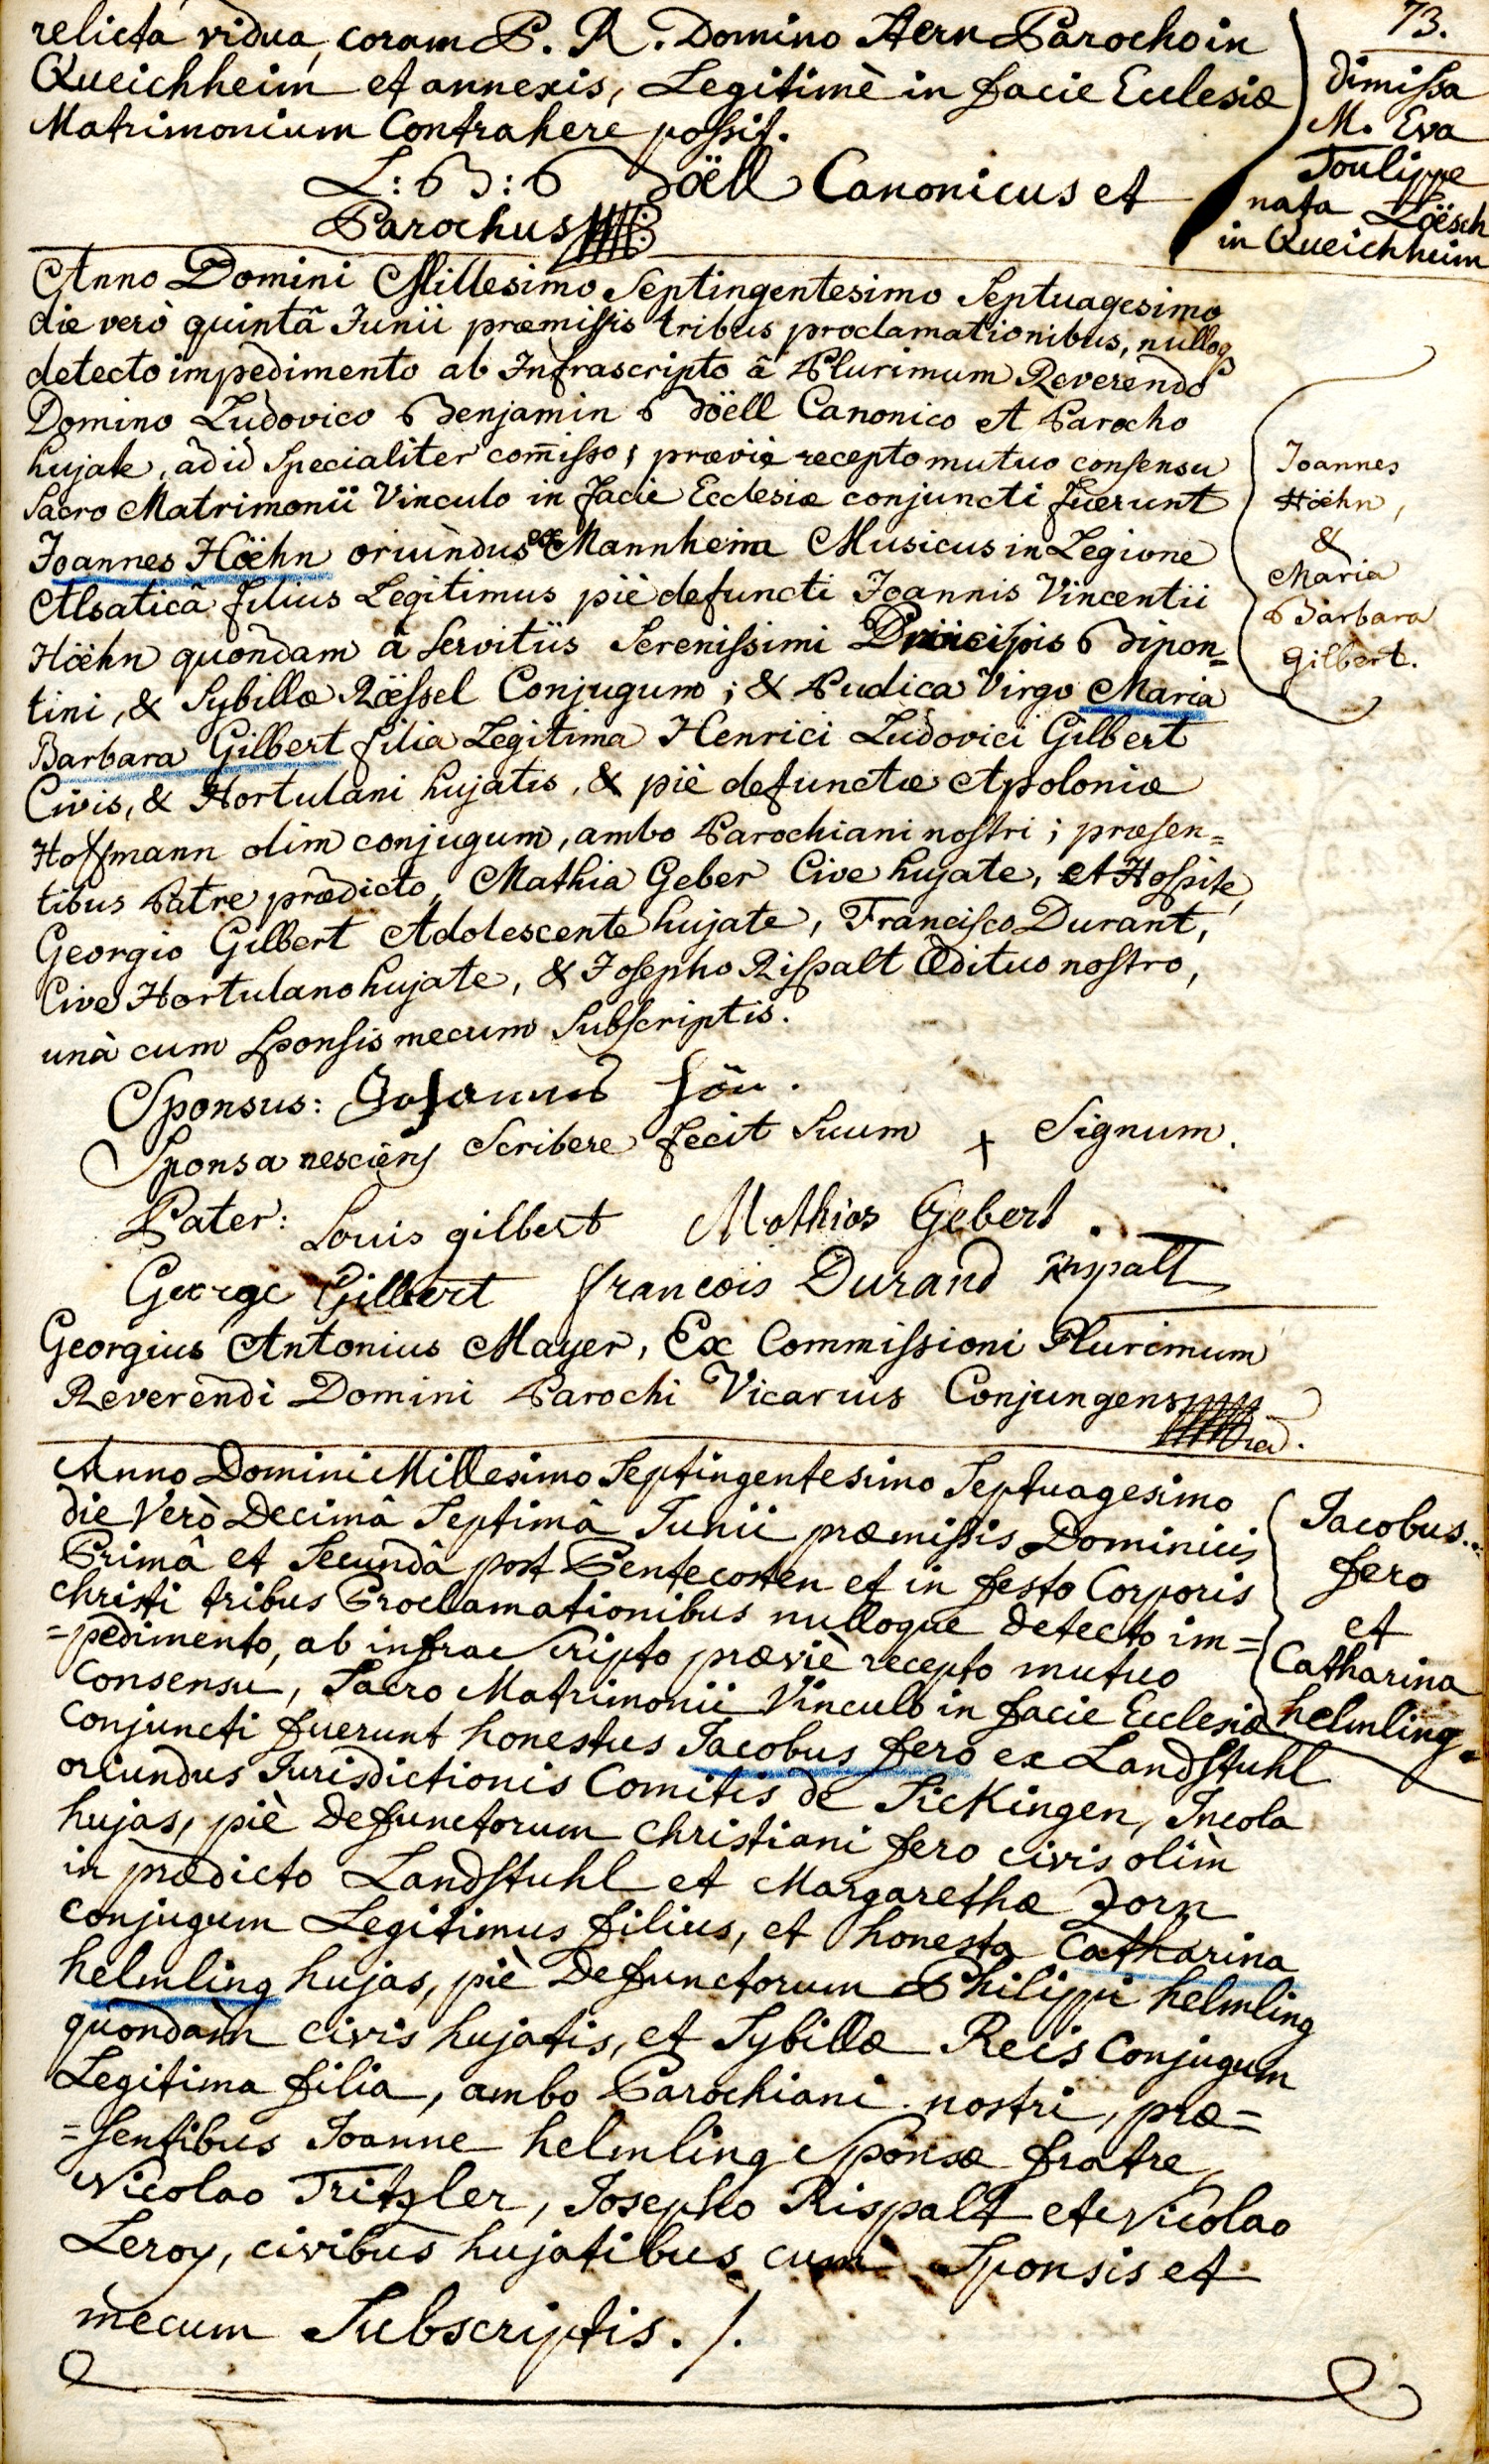 73.
relicta vidua, coram P. R. Domino Hern Parocho in
Queichheim et annexis, Legitimè in facie Ecclesiæ
Matrimonium Contrahere possit.
L: B: Böell Canonicus et
Parochus
Dimissa
M. Eva
Toulippe
nata Löesch
in Queichheim
Anno Domini Millesimo Septingentesimo Septuagesimo
die verò quintâ Junii præmissis tribus proclamationibus, nulloq
detecto impedimento ab Infrascripto â Plurimum Reverendo
Domino Ludovico Benjamin Böell Canonico et Parocho
hujate, ad id Specialiter com̄isso; præviè recepto mutuo consensu
Sacro Matrimonii Vinculo in facie Ecclesiæ conjuncti fuerunt
Joannes Höehn oriundus ex Mannheim Musicus in Legione
Alsaticâ filius Legitimus piè defuncti Joannis Vincentii
Höehn quondam â Servitiis Serenissimi Principis Bipon=
tini, & Sybillæ Röessel Conjugum; & Pudica Virgo Maria
Barbara Gilbert filia Legitima Henrici Ludovici Gilbert
Civis, & Hortulani hujatis, & piè defunctæ Apoloniæ
Hoffmann olim conjugum, ambo Parochiani nostri; præsen=
tibus Patre prædicto, Mathia Geber Cive hujate, et Hospite,
Georgio Gilbert Adolescente hujate, Francisco Durant,
Cive Hortulano hujate, & Josepho Rispalt Ædituo nostro,
unà cum Sponsis mecum Subscriptis.
Joannes
Höehn,
&
Maria
Barbara
Gilbert.
Sponsus: Johannes Hön.
Sponsa nesciens Scribere fecit Suum + Signum.
Pater: Louis gilbert Mathias Gebert.
George Gilbert francois Durand Rispalt
Georgius Antonius Mayer, Ex Commissioni Plurimum
Reverendi Domini Parochi Vicarius Conjungens
Anno Domini Millesimo Septingentesimo Septuagesimo
die Verò Decimâ Septimâ Junii præmissis Dominicis
Primâ et Secundâ post Pentecosten et in festo Corporis
Christi tribus Proclamationibus nulloque detecto im=
=pedimento, ab infrascripto præviè recepto mutuo
Consensu, Sacro Matrimonii Vinculo in facie Ecclesiæ
Conjuncti fuerunt honestus Jacobus fero ex Landstuhl
oriundus Jurisdictionis Comitis de Sickingen, Incola
hujas, piè Defunctorum Christiani fero civis olim
in prædicto Landstuhl et Margarethæ Zorn
Conjugum Legitimus filius, et honesta Catharina
helmling hujas, piè Defunctorum Philippi helmling
quondam civis hujatis, et Sybillæ Reis Conjugum
Legitima filia, ambo Parochiani nostri, præ=
=sentibus Joanne helmling Sponsæ fratre,
Nicolao Tritzler, Josepho Rispalt et Nicolao
Leroy, civibus hujatibus cum Sponsis et
mecum Subscriptis. /.
Jacobus
fero
et
Catharina
helmling.